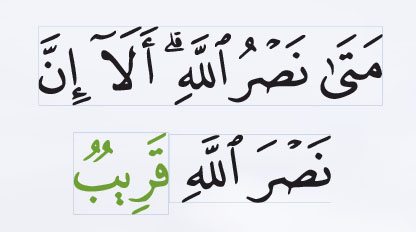 مَتَىٰ نَصْرُ ٱللَّهِ ۗ أَلَآ إِنَّ
نَصْرَ ٱللَّهِ قَرِيبٌ